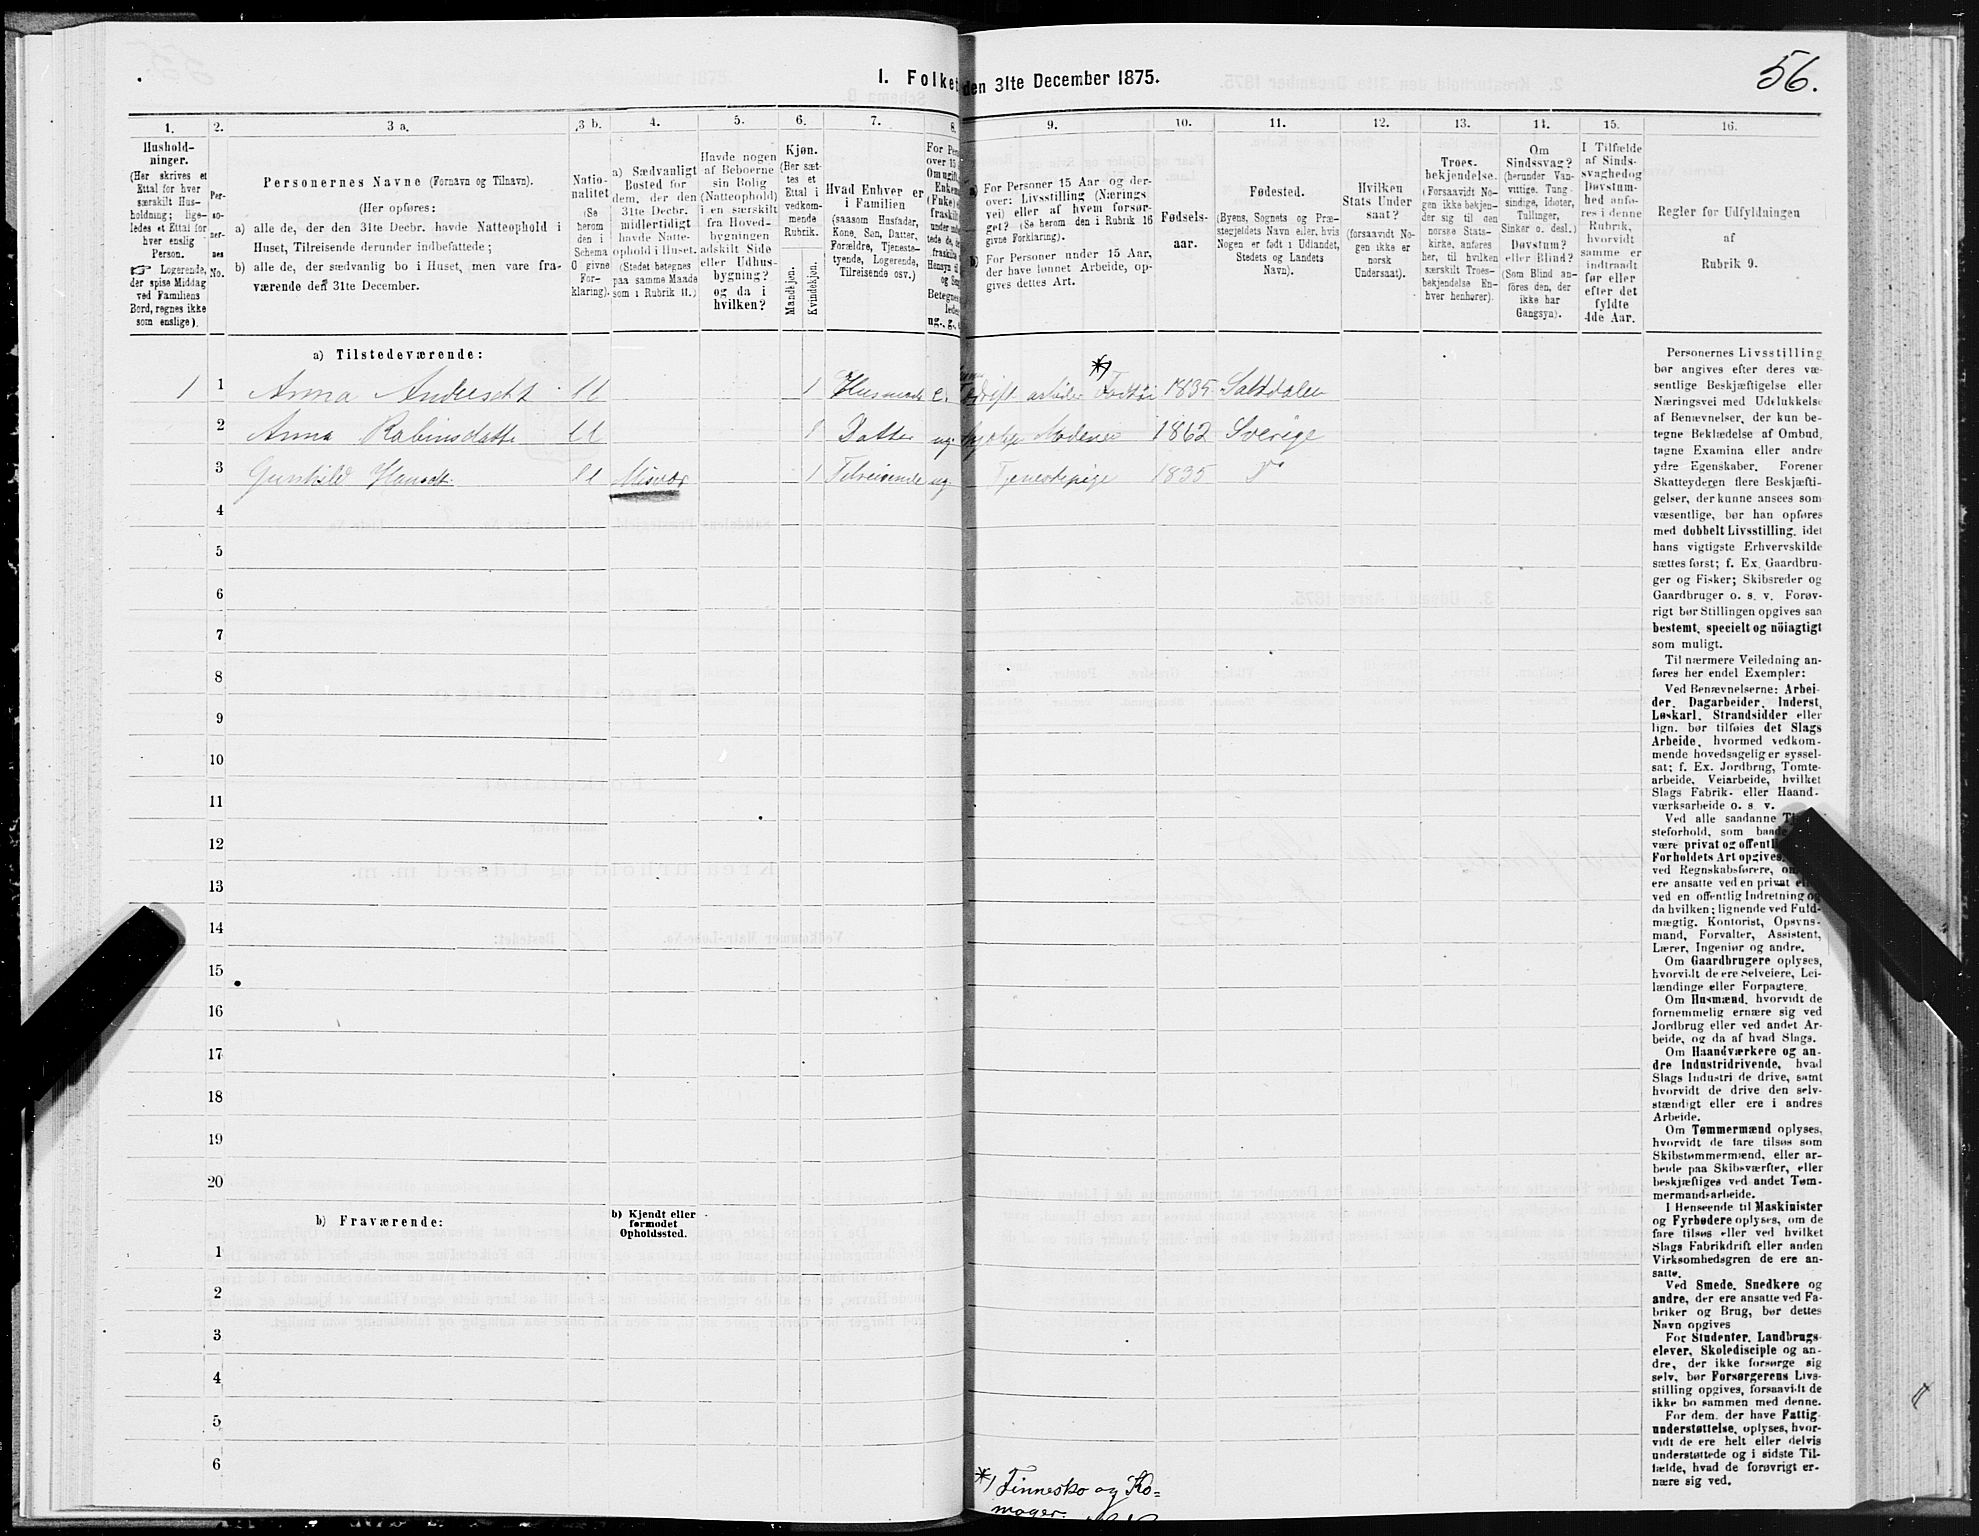 56.
I. Folket den 31te December 1875.
1. 2. 3 a. 3 b. 4. 5. 6. 7. 8. 9. 10. 11. 12. 13. 14. 15. 16.
Hushold-
ninger.
(Her skrives et
Ettal for hver
særskilt Hus-
holdning; lige-
ledes et Ettal for
hver enslig
Person.
☞ Logerende,
der spise Middag
ved Familiens
Bord, regnes ikke
som enslige).
Per-
so-
ner-
nes
No.
Personernes Navne (Fornavn og Tilnavn).
(Her opføres:
a) alle de, der den 31te Decbr. havde Natteophold i
Huset, Tilreisende derunder indbefattede;
b) alle de, der sædvanlig bo i Huset, men vare fra-
værende den 31te December.
Natio-
nalitet
(Se
herom
den i
Schema
O givne
For-
klaring).
a) Sædvanligt
Bosted for
dem, der den
31te Decbr.
midlertidigt
havde Natte-
ophold i Huset.
(Stedet betegnes
paa samme Maade
som i Rubrik 11.)
Havde nogen
af Beboerne
sin Bolig
(Natteophold)
i en særskilt
fra Hoved-
bygningen
adskilt Side
eller Udhus-
bygning?
og da i
hvilken?
Kjøn.
(Her sæt-
tes et
Ettal i
vedkom-
mende
Rubrik.
Mandkjøn.
Kvindekjøn.
Hvad Enhver er
i Familien
(saasom Husfader,
Kone, Søn, Datter,
Forældre, Tjeneste-
tyende, Logerende,
Tilreisende osv.)
For Per
over 15
Om ugift,
Enkem
(Fuke) e
fraskilt
under
tede de,
fraskilte
Hensyn til
og Sen
Betegnes
ledes
ug., g.,
a) For Personer 15 Aar og der-
over: Livsstilling (Nærings
vei) eller af hvem forsør-
get? (Se herom den i Rubrik 16
givne Forklaring).
b) For Personer under 15 Aar,
der have lønnet Arbeide, op-
gives dettes Art.
Fødsels-
aar.
Fødested.
(Byens, Sognets og Præ-
stegjeldets Navn eller, hvis
Nogen er født i Udlandet,
Stedets og Landets
Navn).
Hvilken
Stats Under
saat?
(forsaavidt No-
gen ikke er
norsk
Undersaat).
Troes-
bekjendelse.
(Forsaavidt No-
gen ikke bekjen-
der sig til den
norske Stats-
kirke, anføres
her, til hvilken
særskilt Troes-
bekjendelse En-
hver henhører).
Om
Sindssvag?
(herunder Van-
vittige, Tung-
sindige, Idioter,
Tullinger,
Sinker o. desl.)
Døvstum?
eller Blind?
(Som Blind an-
føres den, der
ikke har
Gangsyn).
I Tilfælde
af Sinds-
svaghed og
Døvstum-
hed anfø-
res i denne
Rubrik,
hvorvidt
samme er
indtraadt
før eller
efter det
fyldte
4de Aar.
Regler for Udfyldningen
af
Rubrik 9.
a) Tilstedeværende:
1 1 Anna Andersdt ll 1 Husmoder e. arbeider *) 1835 Saltdalen
2 Anna Rabinsdatte ll 1 Datter ug Moderen 1862 Sverige
3 Gunhild Hansdt. ll Misvær 1 Tilreisende ug Tjenestepige 1835
4
5
6
7
8
9
10
11
12
13
14
15
16
17
18
19
20
b) Fraværende:
b) Kjendt eller
formodet
Opholdssted.
1
2
3
4
5
6
*) Finnesko og Ko=
moger.
Personernes Livsstilling
bør angives efter deres væ-
sentlige Beskjæftigelse eller
Næringsvei med Udelukkelse
af Benævnelser, der kun be-
tegne Beklædelse af Ombud,
tagne Examina eller andre
ydre Egenskaber. Forener
Skatteyderen flere Beskjæfti-
gelser, der kunne ansees som
væsentlige, bør han opføres
med dobbelt Livsstilling, idet
hans vigtigste Erhvervskilde
sættes først; f. Ex. Gaardbru-
ger og Fisker; Skibsreder og
Gaardbruger o. s. v. Forøv-
rigt bør Stillingen opgives saa
bestemt, specielt og nöiagtigt
som muligt.
Til nærmere Veiledning an-
føres her endel Exempler:
Ved Benævnelserne: Arbei-
der, Dagarbeider, Inderst,
Løskarl, Strandsidder eller
lign. bør tilføies det Slags
Arbeide, hvormed vedkom-
mende hovedsagelig er syssel-
sat; f. Ex. Jordbrug, Tomte-
arbeide, Veiarbeide, hvilket
Slags Fabrik- eller Haand-
værksarbeide o. s. v.
Ved alle saadanne
steforhold, som baade
være privat og offentl
Forholdets Art opgives,
ved Regnskabsførere,
ere ansatte ved en privat
ved en offentlig Indretning og
da hvilken; lignende ved Fuld-
mægtig, Kontorist, Opsyns-
mand, Forvalter, Assistent,
Lærer, Ingeniør og andre.
Om Gaardbrugere oplyses,
hvorvidt de ere Selveiere, Lei-
lændinge eller Forpagtere.
Om Husmænd, hvorvidt de
fornemmelig ernære sig ved
Jordbrug eller ved andet Ar-
beide, og da af hvad Slags.
Om Haandværkere og an-
dre Industridrivende, hvad
Slags Industri de drive, samt
hvorvidt de drive den selv-
stændigt eller ere i andres
Arbeide.
Om Tømmermænd oplyses,
hvorvidt de fare tilsøs som
Skibstømmermænd, eller ar-
beide paa Skibsværfter, eller
beskjæftiges ved andet Tøm-
mermandsarbeide.
I Henseende til Maskinister
og Fyrbødere oplyses, om de
fare tilsøs eller ved hvilket
Slags Fabrikdrift eller anden
Virksomhedsgren de ere an-
satte.
Ved Smede, Snedkere og
andre, der ere ansatte ved Fa-
briker og Brug, bør dettes
Navn opgives
For Studenter, Landbrugs-
elever, Skoledisciple og an-
dre, der ikke forsørge sig
selv, bør Forsørgerens Livs-
stilling opgives, forsaavidt de
ikke bo sammen med denne.
For dem, der have Fattig-
understøttelse, oplyses, hvor-
vidt de ere helt eller delvis
understøttede og i sidste Til-
fælde, hvad de forøvrigt er-
nære sig ved.